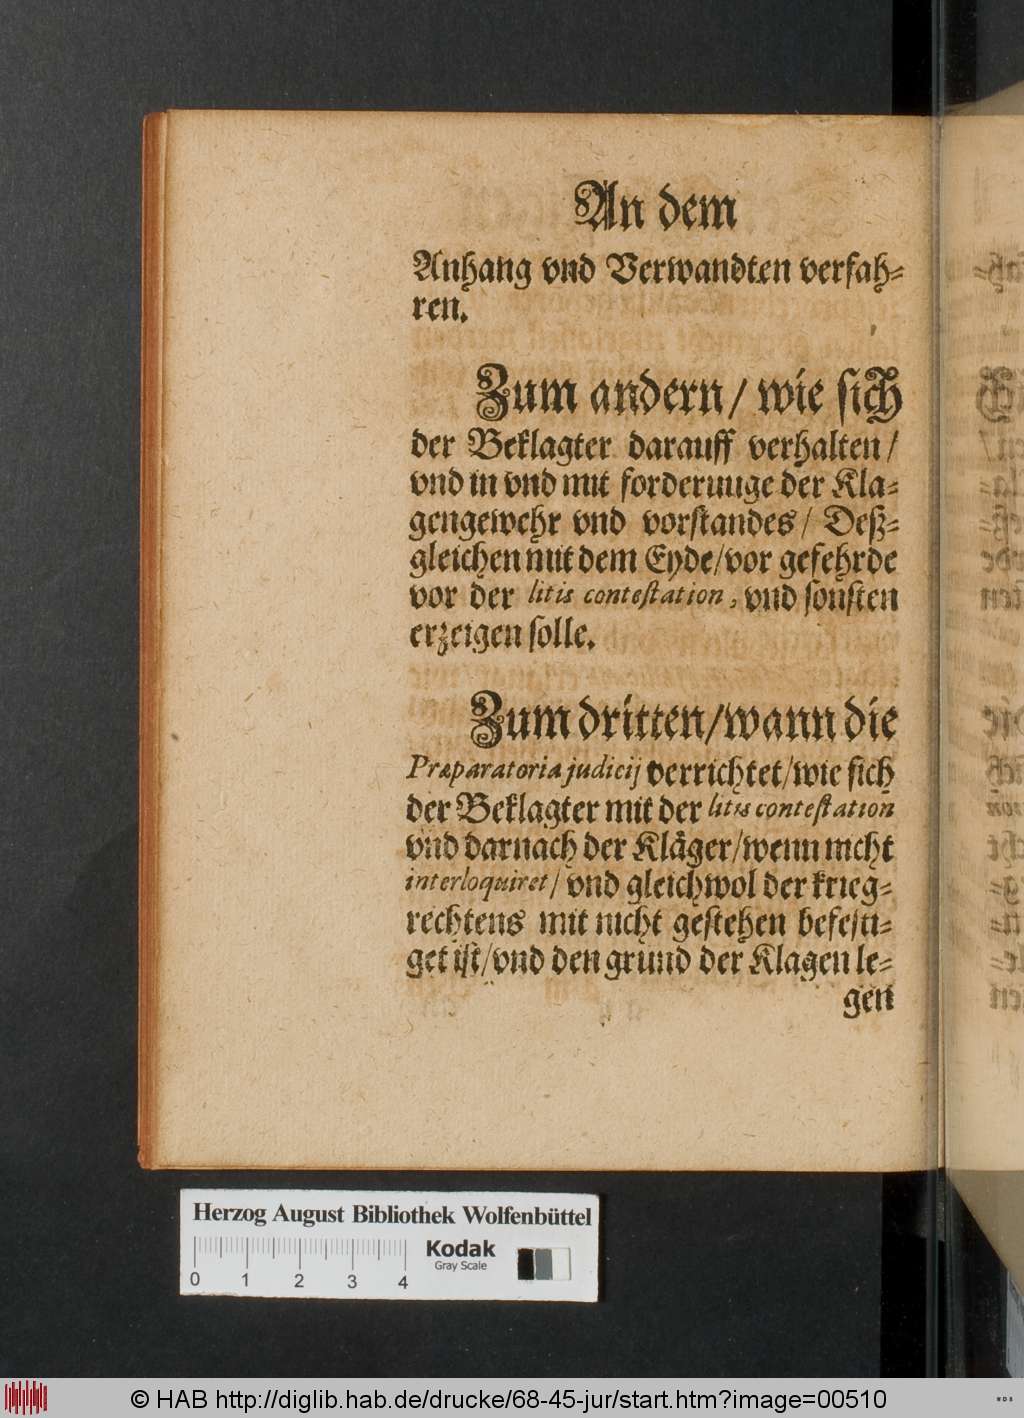 An dem
Anhang vnd Verwandten verfah⸗
ren.
Zum andern / wie sich
der Beklagter darauff verhalten /
vnd in vnd mit forderunge der Kla⸗
gengewehr vnd vorstandes / Deß⸗
gleichen mit dem Eyde / vor gefehrde
vor der litis contestation, vnd sonsten
erzeigen solle.
Zum dritten / wann die
Præparatoria judicij verrichtet / wie sich
der Beklagter mit der litis contestation
vnd darnach der Kläger / wenn nicht
interloquiret / vnd gleichwol der krieg⸗
rechtens mit nicht gestehen befesti⸗
get ist / vnd den grund der Klagen le⸗
gen
Herzog August Bibliothek Wolfenbüttel
0 1 2 3 4
Kodak
Gray Scale
© HAB http://diglib.hab.de/drucke/68-45-jur/start.htm?image=00510